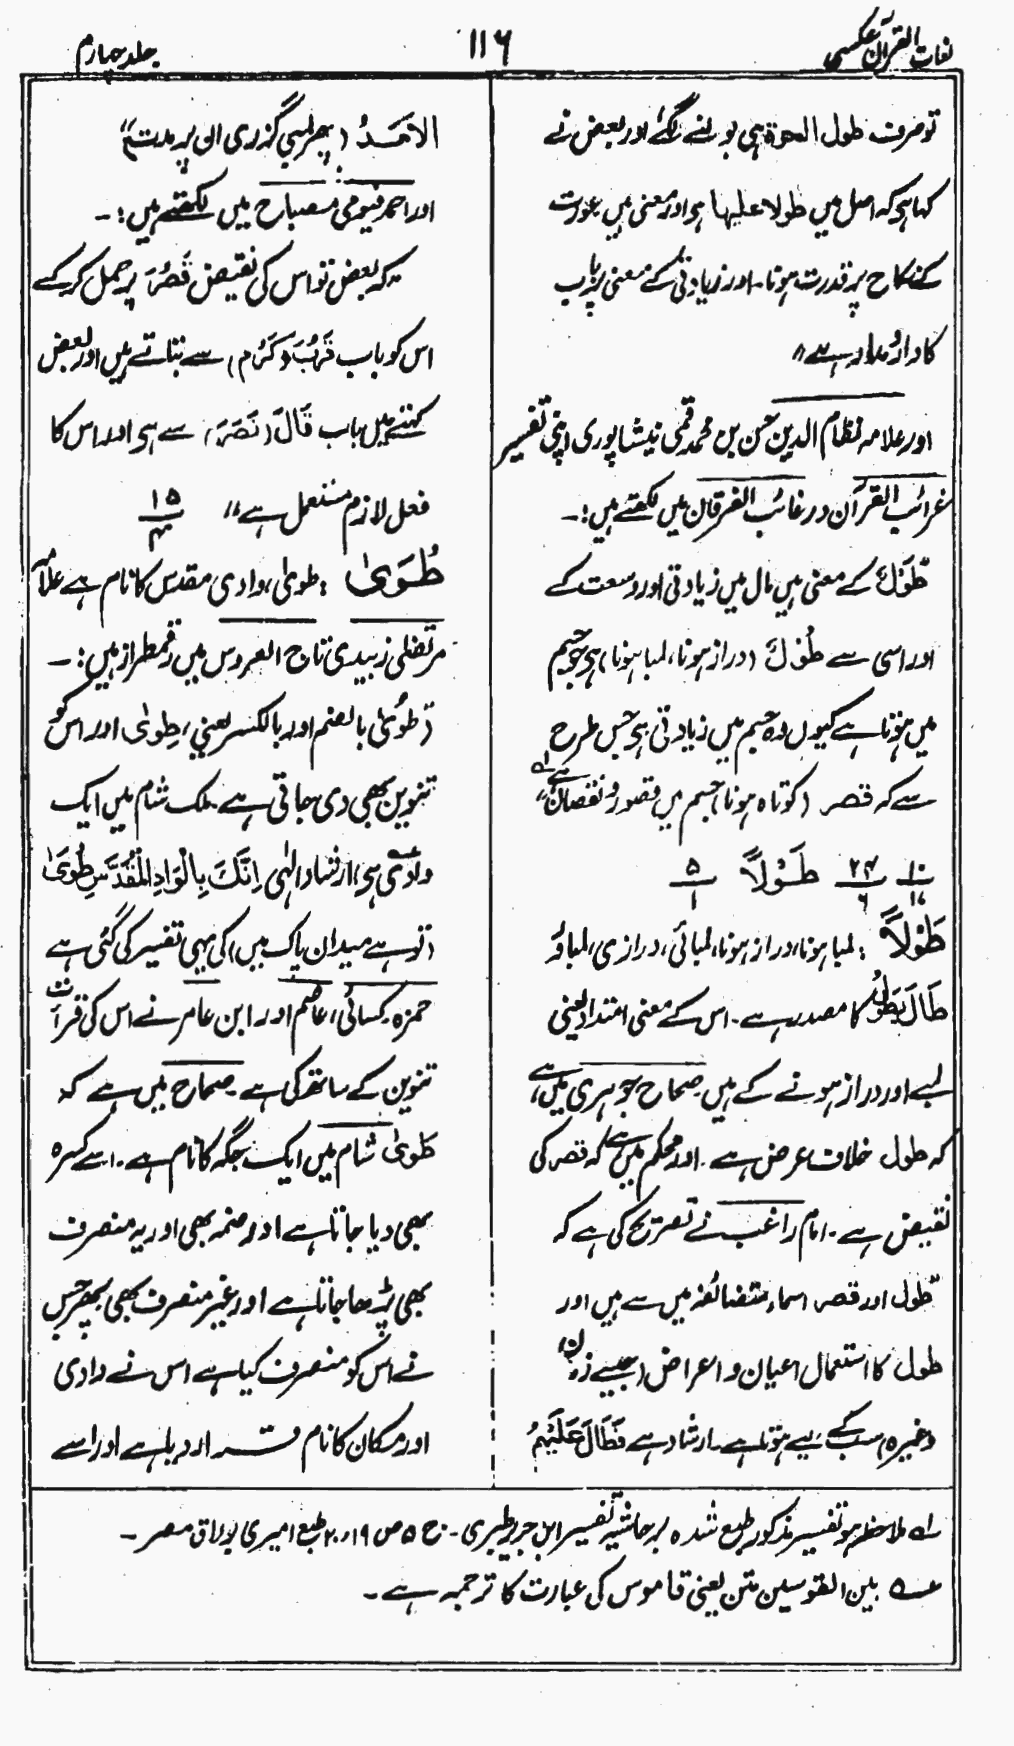 لغات القرآن عکسی
۱۱۶
جلد چہارم
تو صرف طول الحرۃ ہی بولنے لگے اور بعض نے
کہا ہی کہ اصل میں طولا علیہا ہی اور معنی ہیں عورت
کے نکاح پر قدرت ہونا۔ اور زیادتی کے معنی پر باب
کا دار و مدار ہے"
اور علامہ نظام الدین حسن بن محمد قمی نیشاپوری اپنی تفسیر
غرائب القرآن و رغائب الفرقان میں لکھتے ہیں:-
"طَوْلٌ کے معنی ہیں مال میں زیادتی اور وسعت کے
اور اسی سے طُوْلٌ (دراز ہونا، لمبا ہونا) ہی جو جسم
میں ہوتا ہے کیوں وہ جسم میں زیادتی ہی جس طرح
سے کہ قصر (کوتاہ ہونا) جسم میں قصور و نقصان ہے" لہ
۱۰/۱۷ ۲۴/۶ طَوْلاً ۵/۱
طُوْلاً : لمبا ہونا، دراز ہونا، لمبائی، درازی، لمباؤ
طَالَ یَطُوْلُ کا مصدر ہے۔ اس کے معنی امتداد یعنی
لمبے اور دراز ہونے کے ہیں۔ صحاح جوہری میں ہے
کہ طول خلاف عرض ہے۔ اور محکم میں ہے کہ قصر کی
نقیض ہے۔ امام راغب نے تصریح کی ہے کہ
"طول اور قصر اسماء متضائفہ میں سے ہیں اور
طول کا استعمال اعیان و اعراض (جیسے زمان
وغیرہ) سب کے لیے ہوتا ہے۔ ارشاد ہے فَطَالَ عَلَیْہِمُ
الْاَمَدُ (پھر لمبی گزری ان پر مدت)"
اور احمد فیومی مصباح میں لکھتے ہیں:-
"کہ بعض تو اس کی نقیض قَصُرَ پر حمل کر کے
اس کو باب قَرُبَ (کَرُمَ) سے بتاتے ہیں اور بعض
کہتے ہیں باب قَالَ (نَصَرَ) سے ہی اور اس کا
فعل لازم مستعمل ہے" ۱۵/۴
طُوًى : طویٰ، وادی مقدس کا نام ہے علامہ
مرتضیٰ زبیدی تاج العروس میں رقمطراز ہیں:-
(طویٰ بالضم اور بالکسر یعنی، طِویٰ اور اس کو
تنوین بھی دی جاتی ہے۔ ملک شام میں ایک
وادی ہی) عہ ارشاد الٰہی اِنَّکَ بِالْوَادِ الْمُقَدَّسِ طُوًى
(تو ہے میدان پاک میں) کی یہی تفسیر کی گئی ہے
حمزہ، کسائی، عاصم اور ابن عامر نے اس کی قرات
تنوین کے ساتھ کی ہے۔ صحاح میں ہے کہ
طویٰ شام میں ایک جگہ کا نام ہے۔ اسے کسرہ
بھی دیا جاتا ہے اور ضمہ بھی اور یہ منصرف
بھی پڑھا جاتا ہے اور غیر منصرف بھی پھر جس
نے اس کو منصرف کیا ہے اس نے وادی
اور مکان کا نام قرار دیا ہے اور اسے
لہ ملاحظہ ہو تفسیر مذکور طبع شدہ بر حاشیہ تفسیر ابن جریر طبری۔ ج ۵ ص ۱۹، ۲۰ طبع امیری بولاق مصر۔
عہ بین القوسین متن یعنی قاموس کی عبارت کا ترجمہ ہے۔